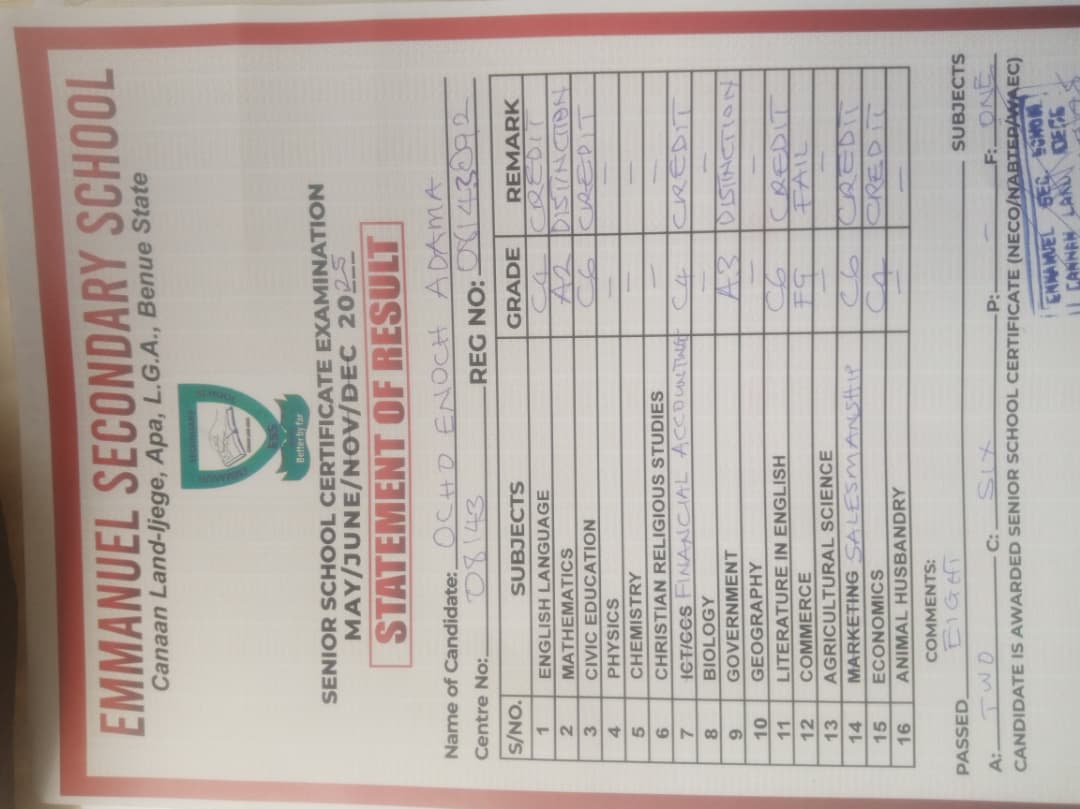 EMMANUEL SECONDARY SCHOOL
Canaan Land-Ijege, Apa, L.G.A., Benue State
EMMANUEL SECONDARY SCHOOL
ESS
Better by far
SENIOR SCHOOL CERTIFICATE EXAMINATION
MAY/JUNE/NOV/DEC 2025
STATEMENT OF RESULT
Name of Candidate: OCHO ENOCH ADAMA
Centre No: 08143 REG NO: 08143092
S/NO. SUBJECTS GRADE REMARK
1 ENGLISH LANGUAGE C4 CREDIT
2 MATHEMATICS A2 DISTINCTION
3 CIVIC EDUCATION C6 CREDIT
4 PHYSICS — —
5 CHEMISTRY — —
6 CHRISTIAN RELIGIOUS STUDIES — —
7 ICT/CCCS FINANCIAL ACCOUNTING C4 CREDIT
8 BIOLOGY — —
9 GOVERNMENT A3 DISTINCTION
10 GEOGRAPHY — —
11 LITERATURE IN ENGLISH C6 CREDIT
12 COMMERCE F9 FAIL
13 AGRICULTURAL SCIENCE — —
14 MARKETING SALESMANSHIP C6 CREDIT
15 ECONOMICS C4 CREDIT
16 ANIMAL HUSBANDRY — —
COMMENTS:
PASSED EIGHT SUBJECTS
A: TWO C: SIX P: — F: ONE
CANDIDATE IS AWARDED SENIOR SCHOOL CERTIFICATE (NECO/NABTEB/WAEC)
EMMANUEL SEC.
CANAAN LAND